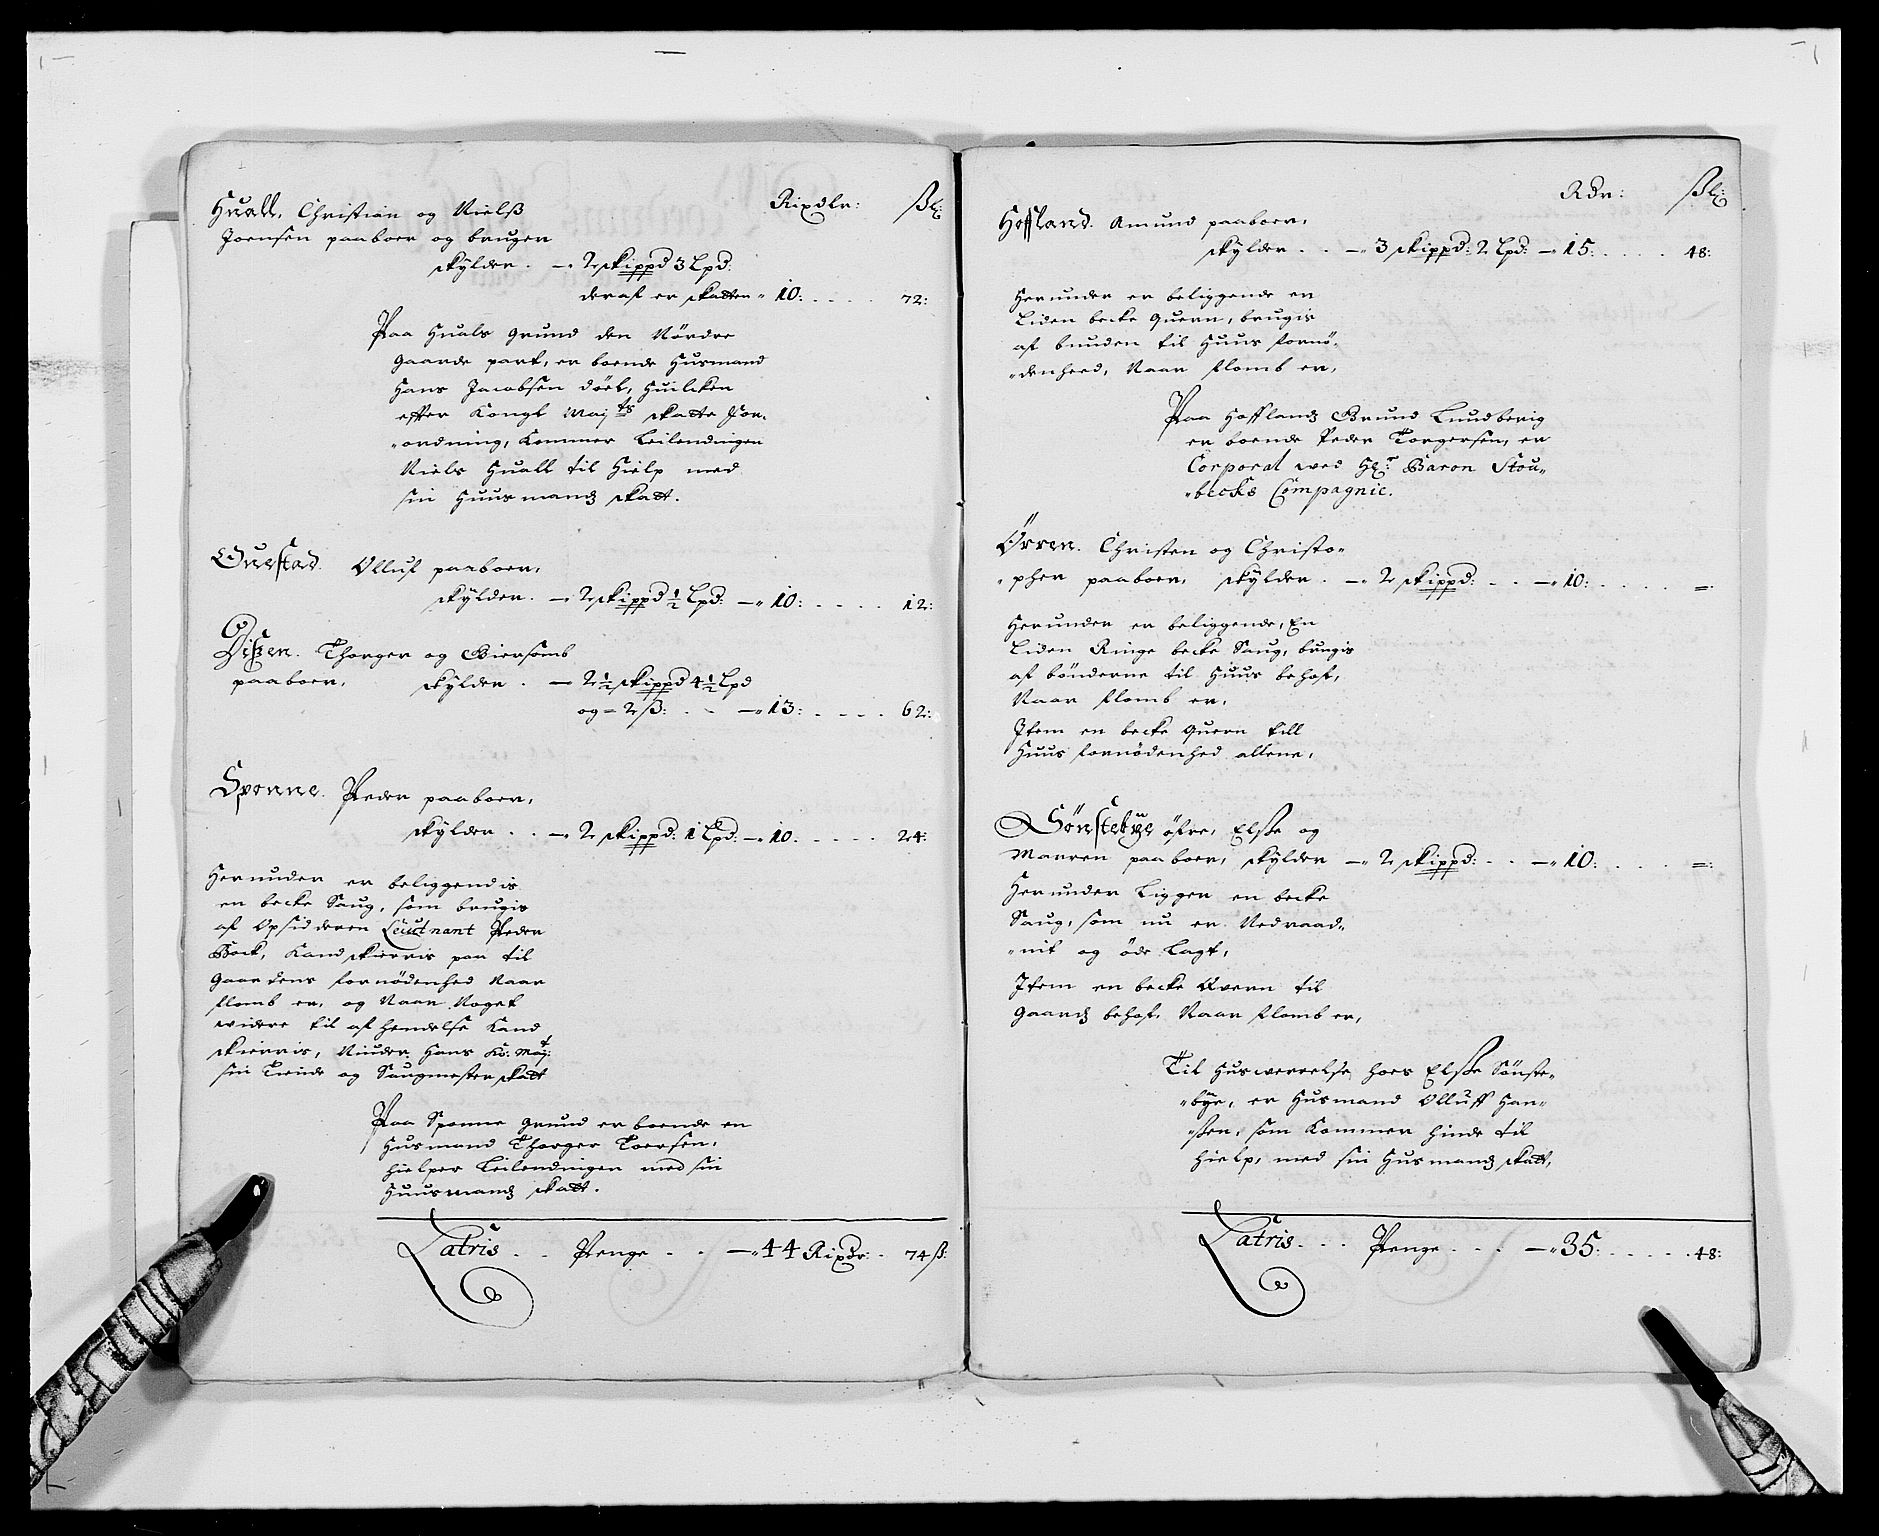 Rixdlr: ß:
Huall. Christian og Nielß
Joensen paaboer og bruger
skylder. — 2 skippd 3 Lpd:
deraf er skatten 10: . . . . 72:
Paa Huals grund den Nördre
gaarde part, er boende Husmand
Hans Jacobsen döel, Huilcken
effter Kongl Maj:ts skatte For-
ordning, Kommer Leilendingen
Niels Huall til Hielp med
sin Huusmands skatt.
Ouestad. Olluf paaboer,
skylder. — 2 skippd ½ Lpd: — 10: . . . . 12:
Dißen. Thorger og Biersomb
paaboer, skylder. — 2½ skippd 4½ Lpd
og = 2 ß: . . — 13: . . . . 62:
Sponne. Peder paaboer,
skylder . . — 2 skippd: 1 Lpd: — 10. . . . . 24:
Herunder er beliggendis
en becke Saug, som brugis
af Opsidderen Leutnant Peder
Bock, Kand skierris paa til
gaardens fornödenhed Naar
flomb er, og Naar Noget
widere til afhendelse Kand
skierris, Niuder Hans Ko: May:t
sin Tiende og Saugmester skatt
Paa Sponne grund er boende en
Husmand Thorger Toersen,
hielper Leilendingen med sin
Huusmands skatt.
Latris . . Penge . . — 44 Rixdr: . 74 ß:
Rdr: ß:
Hoffland. Amund paaboer,
skylder . . — 3 skippd: 2 Lpd: — 15: . . . . 48:
Herunder er beliggende en
Liden becke Quern, brugis
af bunden til Huus fornö-
denheed, Naar flomb er,
Paa Hofflands Grund Lundberig
er boende Peder Torgersen, er
Corporal wed H:r Baron Stou-
becks Compagnie.
Örren. Christen og Christo-
pher paaboer, skylder. — 2 skippd: . . — 10: . . . . =:
Herunder er beliggende, En
Liden Ringe becke Saug, brugis
af bönderne til Huus behof,
Naar flomb er,
Item en becke Quern till
Huus fornödenhed allene,
Sönstebye öfre, Elsße og
Marren paaboer, skylder — 2 skippd: . . — 10: . . . . =:
Herunder Ligger en becke
Saug, som nu er Nedraad-
nit og öde Lagt,
Item en becke Qvern til
gaards behof, Naar flomb er,
Til Huswerrelse hoes Elsße Sönste-
bye, er Husmand Olluff Han-
ßen, som Kommer hinde til
hielp, med sin Husmands skatt,
Latris. . . Penge . . . — 35: . . . . . 48: